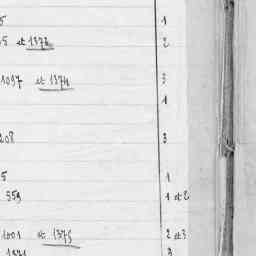 5 1
5 et 1373 2
1097 et 1374 3
1
208 3
5 1
559 1 et 2
1001 et 1375 2 et 3
1371 3